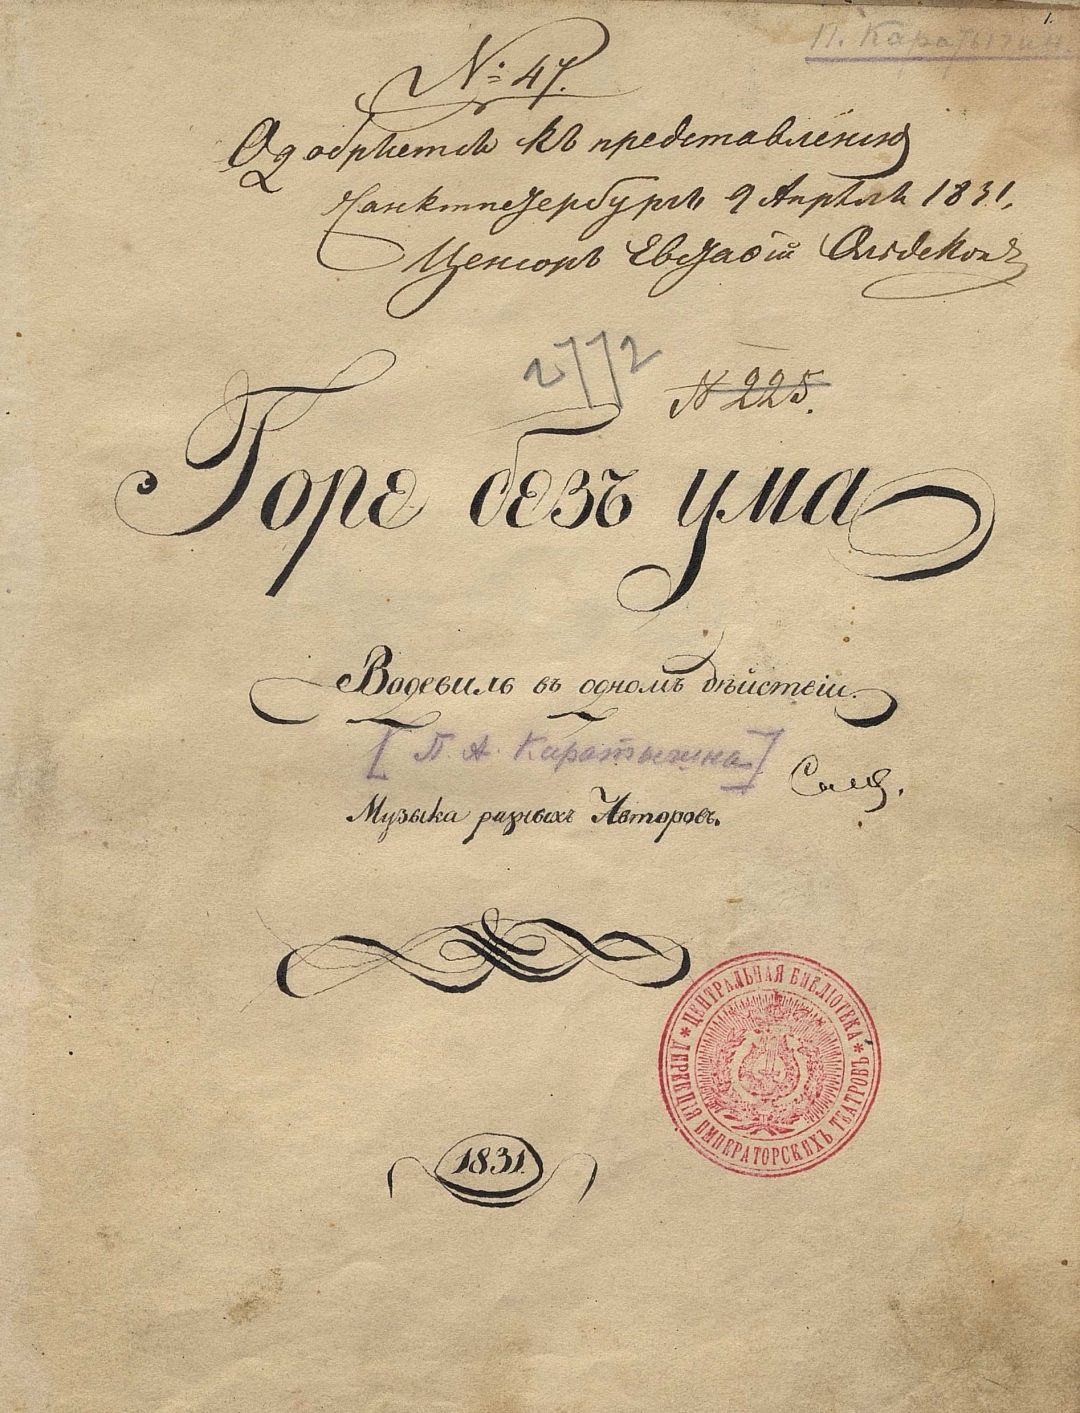 1.
П. Каратыгин.
№ 47.
Одобряется къ представленію
Санктпетербургъ 9 Апрѣля 1831.
Ценсоръ Евстафій Ольдекопъ
2772
№ 225.
Горе безъ ума
Водевиль въ одномъ дѣйствіи.
[П. А. Каратыгина]
Музыка разныхъ Авторовъ.
ЦЕНТРАЛЬНАЯ БИБЛІОТЕКА * ДИРЕКЦІЯ ИМПЕРАТОРСКИХЪ ТЕАТРОВЪ *
1831.